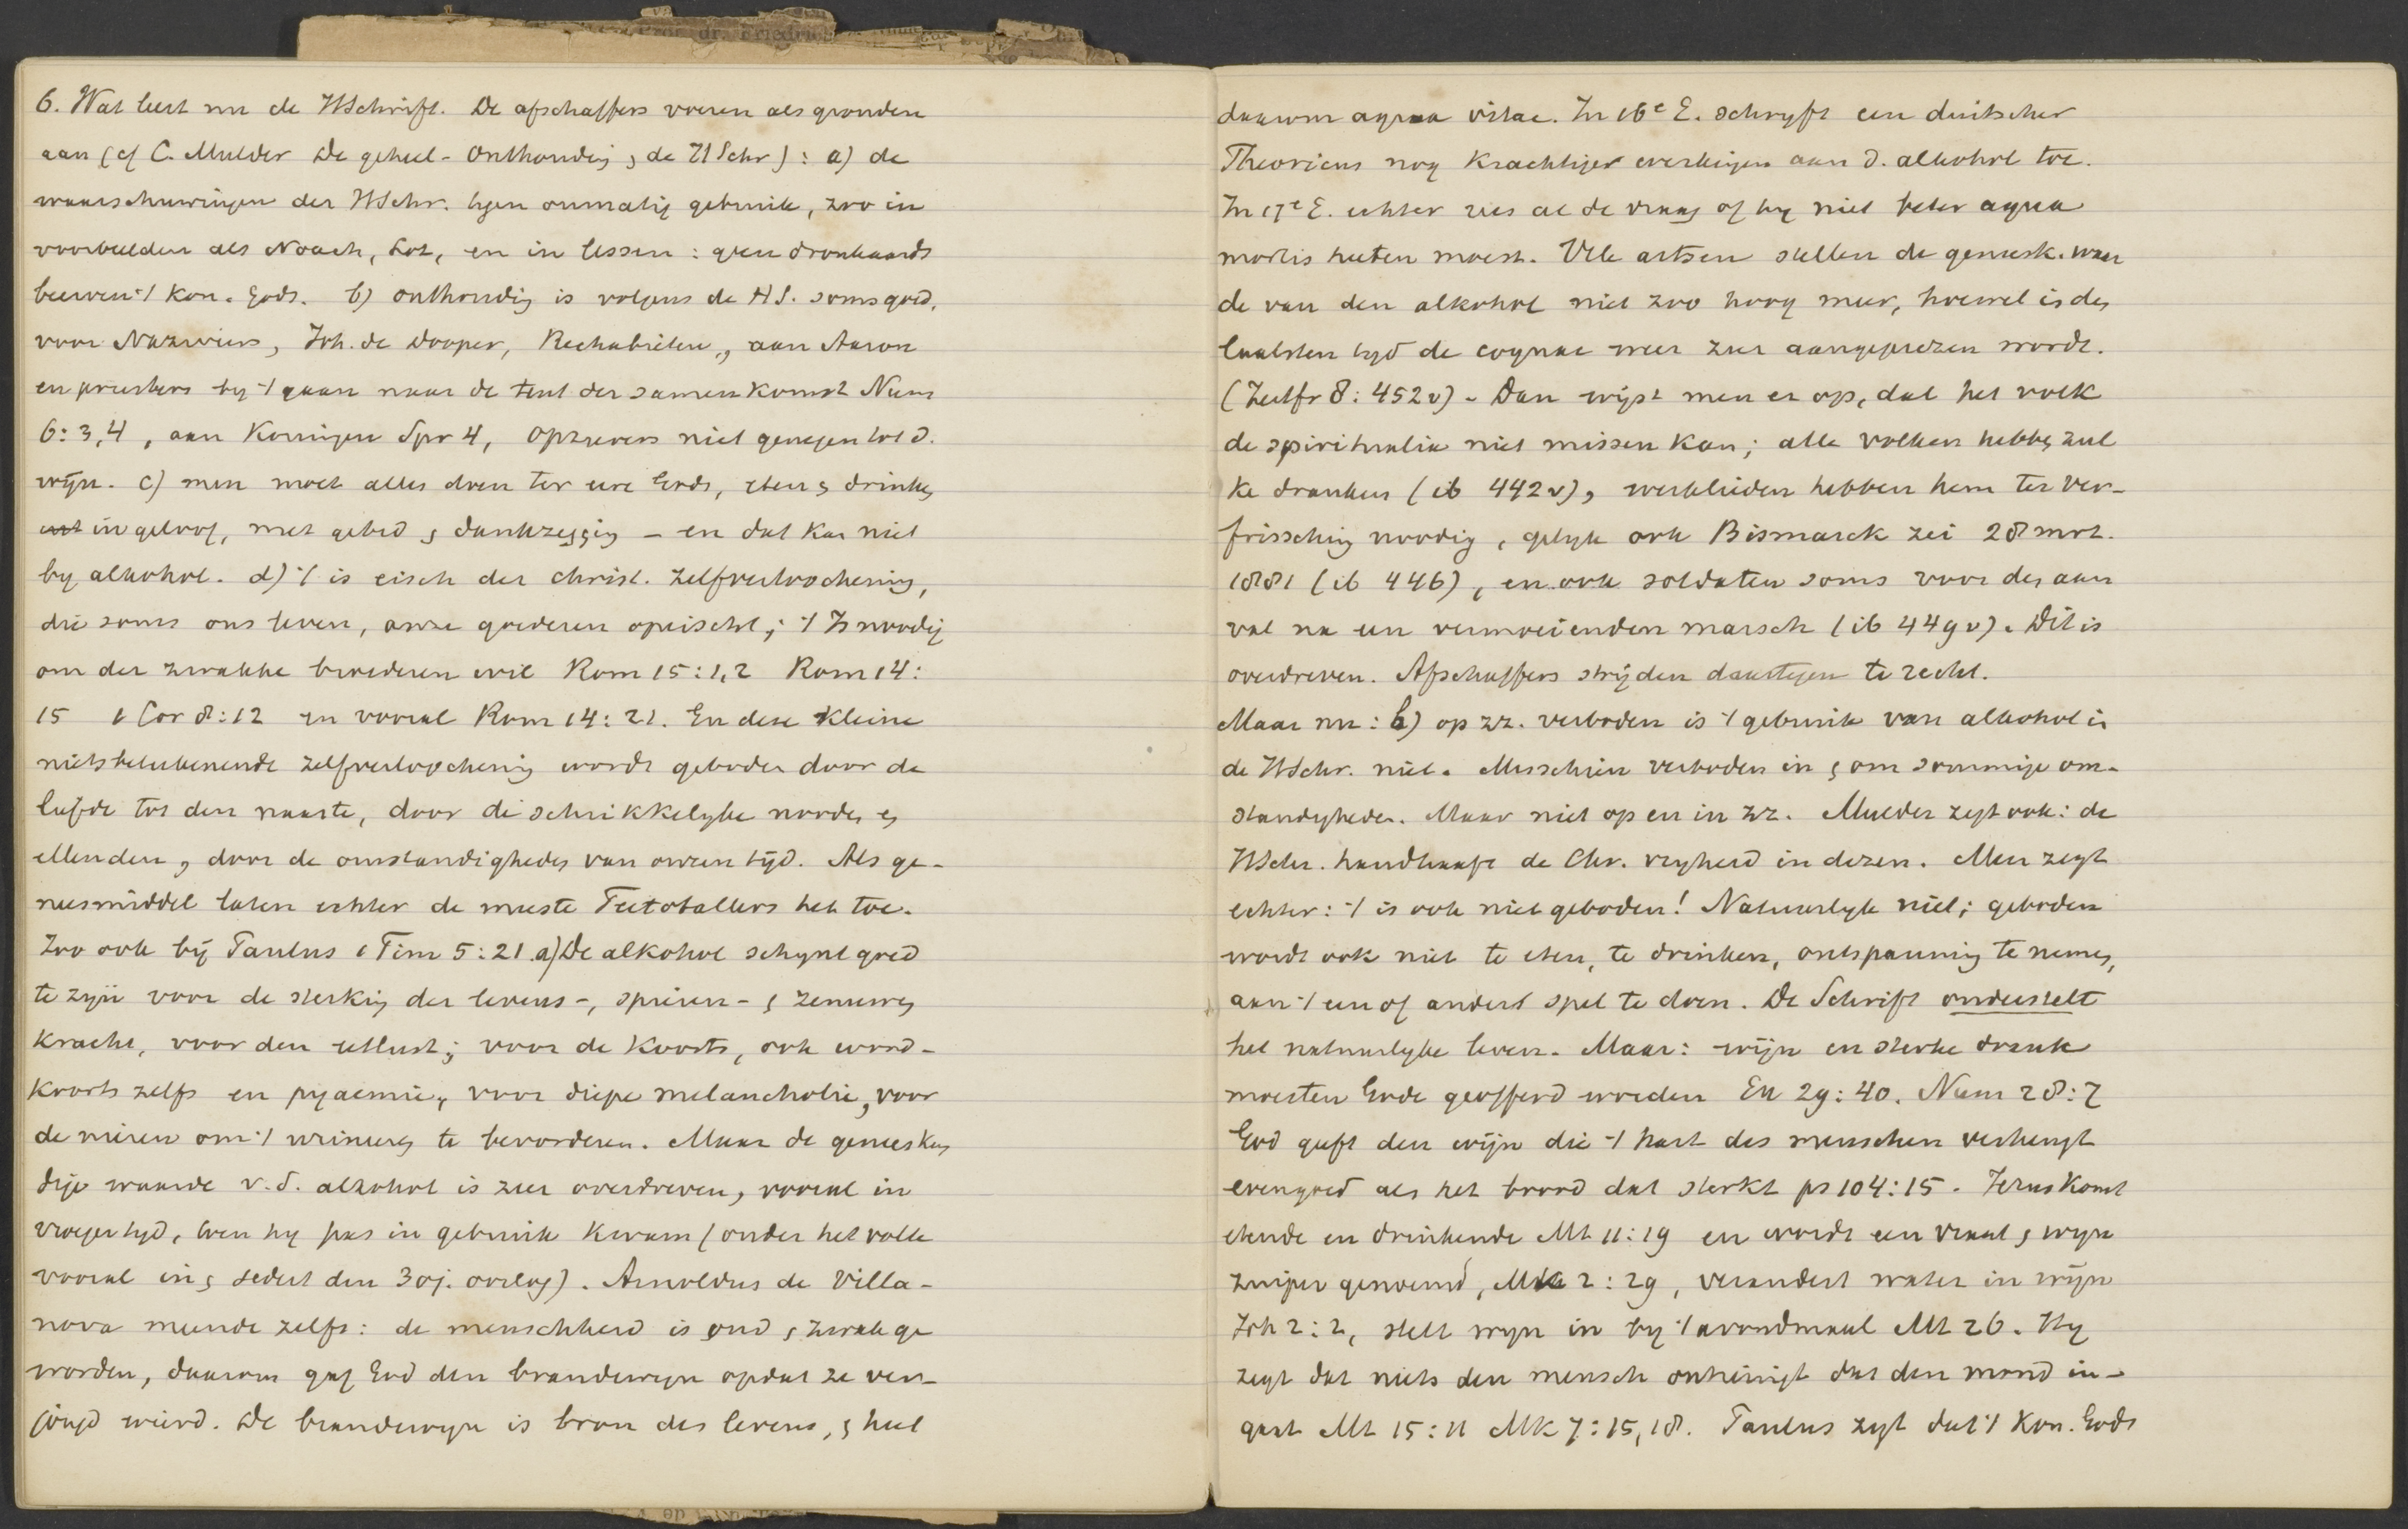 Prof. dr. Friedrich
6. Wat leert nu de HSchrift. De afschaffers voeren als gronden
aan (cf C. Mulder De geheel-onthouding & de HSchr): a) de
waarschuwingen der HSchr. tgen onmatig gebruik, zoo in
voorbeelden als Noach, Lot, en in lessen: geen dronkaards
beerven 't Kon. Gods. b) onthoudig is volgens de HS. soms goed,
voor Nazireërs, Joh. de Dooper, Rechabieten, aan Aaron
en priesters by 't gaan naar de tent der samenkomst Num
6:3,4, aan Koningen Spr 4, opzieners niet genegen tot d.
wijn. c) men moet alles doen ter eere Gods, eten & drinken
in geloof, met gebed & dankzegging – en dat kan niet
by alkohol. d) 't is eisch der christ. zelfverloochening,
die soms ons leven, onze goederen opeischt; 't Is noodig
om der zwakke broederen wil Rom 15:1,2 Rom 14:
15 1 Cor 8:12 en vooral Rom 14:21. En deze kleine
nietsbeteekenende zelfverloochenig wordt geboden door de
liefde tot den naaste, door de schrikkelyke nooden en
ellenden, door de omstandigheden van onzen tyd. Als ge-
neesmiddel laten echter de meeste Teetotallers het toe.
Zoo ook bij Paulus 1 Tim 5:21. a) De alkohol schynt goed
te zyn voor de sterkig der levens-, spieren- & zenuwen
kracht, voor den eetlust; voor de koorts, ook wond-
koorts zelfs en pyaemie, voor diepe melancholie, voor
de nieren om 't urineren te bevorderen. Maar de geneeskun
dige waarde v.d. alkohol is zeer overdreven, vooral in
vroeger tyd, toen hy pas in gebruik kwam (onder het volk
vooral in & sedert den 30j. oorlog). Arnoldus de Villa-
nova meende zelfs: de menschheid is oud & zwak ge
worden, daarom gaf God den brandewyn opdat ze ver-
jongd wierd. De brandewyn is bron des levens, & heet
daarom aqua vitae. In 16e E. schryft een duitscher
Theoricus nog krachtiger werkingen aan d. alkohol toe.
In 17e E. echter rees al de vraag of hy niet beter aqua
mortis heeten moest. Vele artsen stellen de geneesk. waar
de van den alkohol niet zoo hoog meer, hoewel in den
laatsten tyd de cognac weer zeer aangeprezen wordt.
(Zeitfr 8:452v). Dan wijst men er op, dat het volk
de spiritualia niet missen kan; alle volken hebben zul
ke dranken (ib 442v), werklieden hebben hem ter ver-
frissching noodig, gelyk ook Bismarck zei 28 mrt.
1881 (ib 446), en ook soldaten soms voor den aan
val na een vermoeienden marsch (ib 449v). Dit is
overdreven. Afschaffers strijden daartegen te recht.
Maar nu: b) op zz. verboden is 't gebruik van alkohol in
de HSchr. niet. Misschien verboden in & om sommige om-
standigheden. Maar niet op en in zz. Mulder zegt ook: de
HSchr. handhaaft de Chr. vryheid in dezen. Men zegt
echter: 't is ook niet geboden! Natuurlyk niet; geboden
wordt ook niet te eten, te drinken, ontspanning te nemen,
aan 't een of andert spel te doen. De Schrift onderstelt
het natuurlyke leven. Maar: wijn en sterke drank
moesten Gode geofferd worden Ex 29:40. Num 28:7
God geeft den wijn die 't hart des menschen verheugt
evengoed als het brood dat sterkt ps 104:15. Jezus komt
etende en drinkende Mt 11:19 en wordt een vraat & wyn
zuiper genoemd, Mk 2:29, verandert water in wijn
Joh 2:2, stelt wyn in by 't avondmaal Mt 26. Hy
zegt dat niets den mensch ontreinigt dat den mond in-
gaat Mt 15:11 Mk 7:15,18. Paulus zegt dat 't Kon. Gods